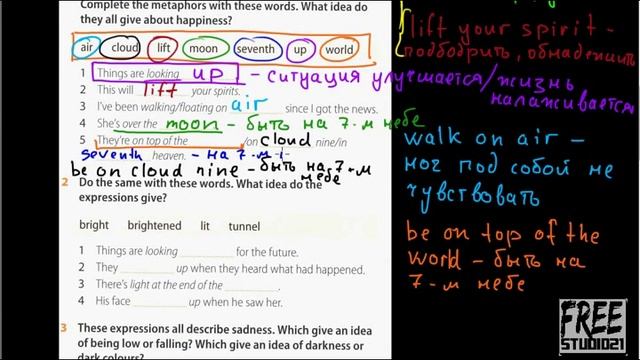 Complete the metaphors with these words. What idea do
they all give about happiness?
air cloud lift moon seventh up world
1 Things are looking UP - ситуация улучшается/жизнь
налаживается
2 This will lift your spirits.
3 I've been walking/floating on air since I got the news.
4 She's over the moon - быть на 7-м небе
5 They're on top of the /on cloud nine/in
seventh heaven. - на 7-м
be on cloud nine - быть на 7-м
небе
2 Do the same with these words. What idea do the
expressions give?
bright brightened lit tunnel
1 Things are looking for the future.
2 They up when they heard what had happened.
3 There's light at the end of the .
4 His face up when he saw her.
3 These expressions all describe sadness. Which give an idea
of being low or falling? Which give an idea of darkness or
dark colours?
lift your spirit -
подбодрить, обнадежить
walk on air -
ног под собой не
чувствовать
be on top of the
world - быть на
7-м небе
FREE
STUDIO21